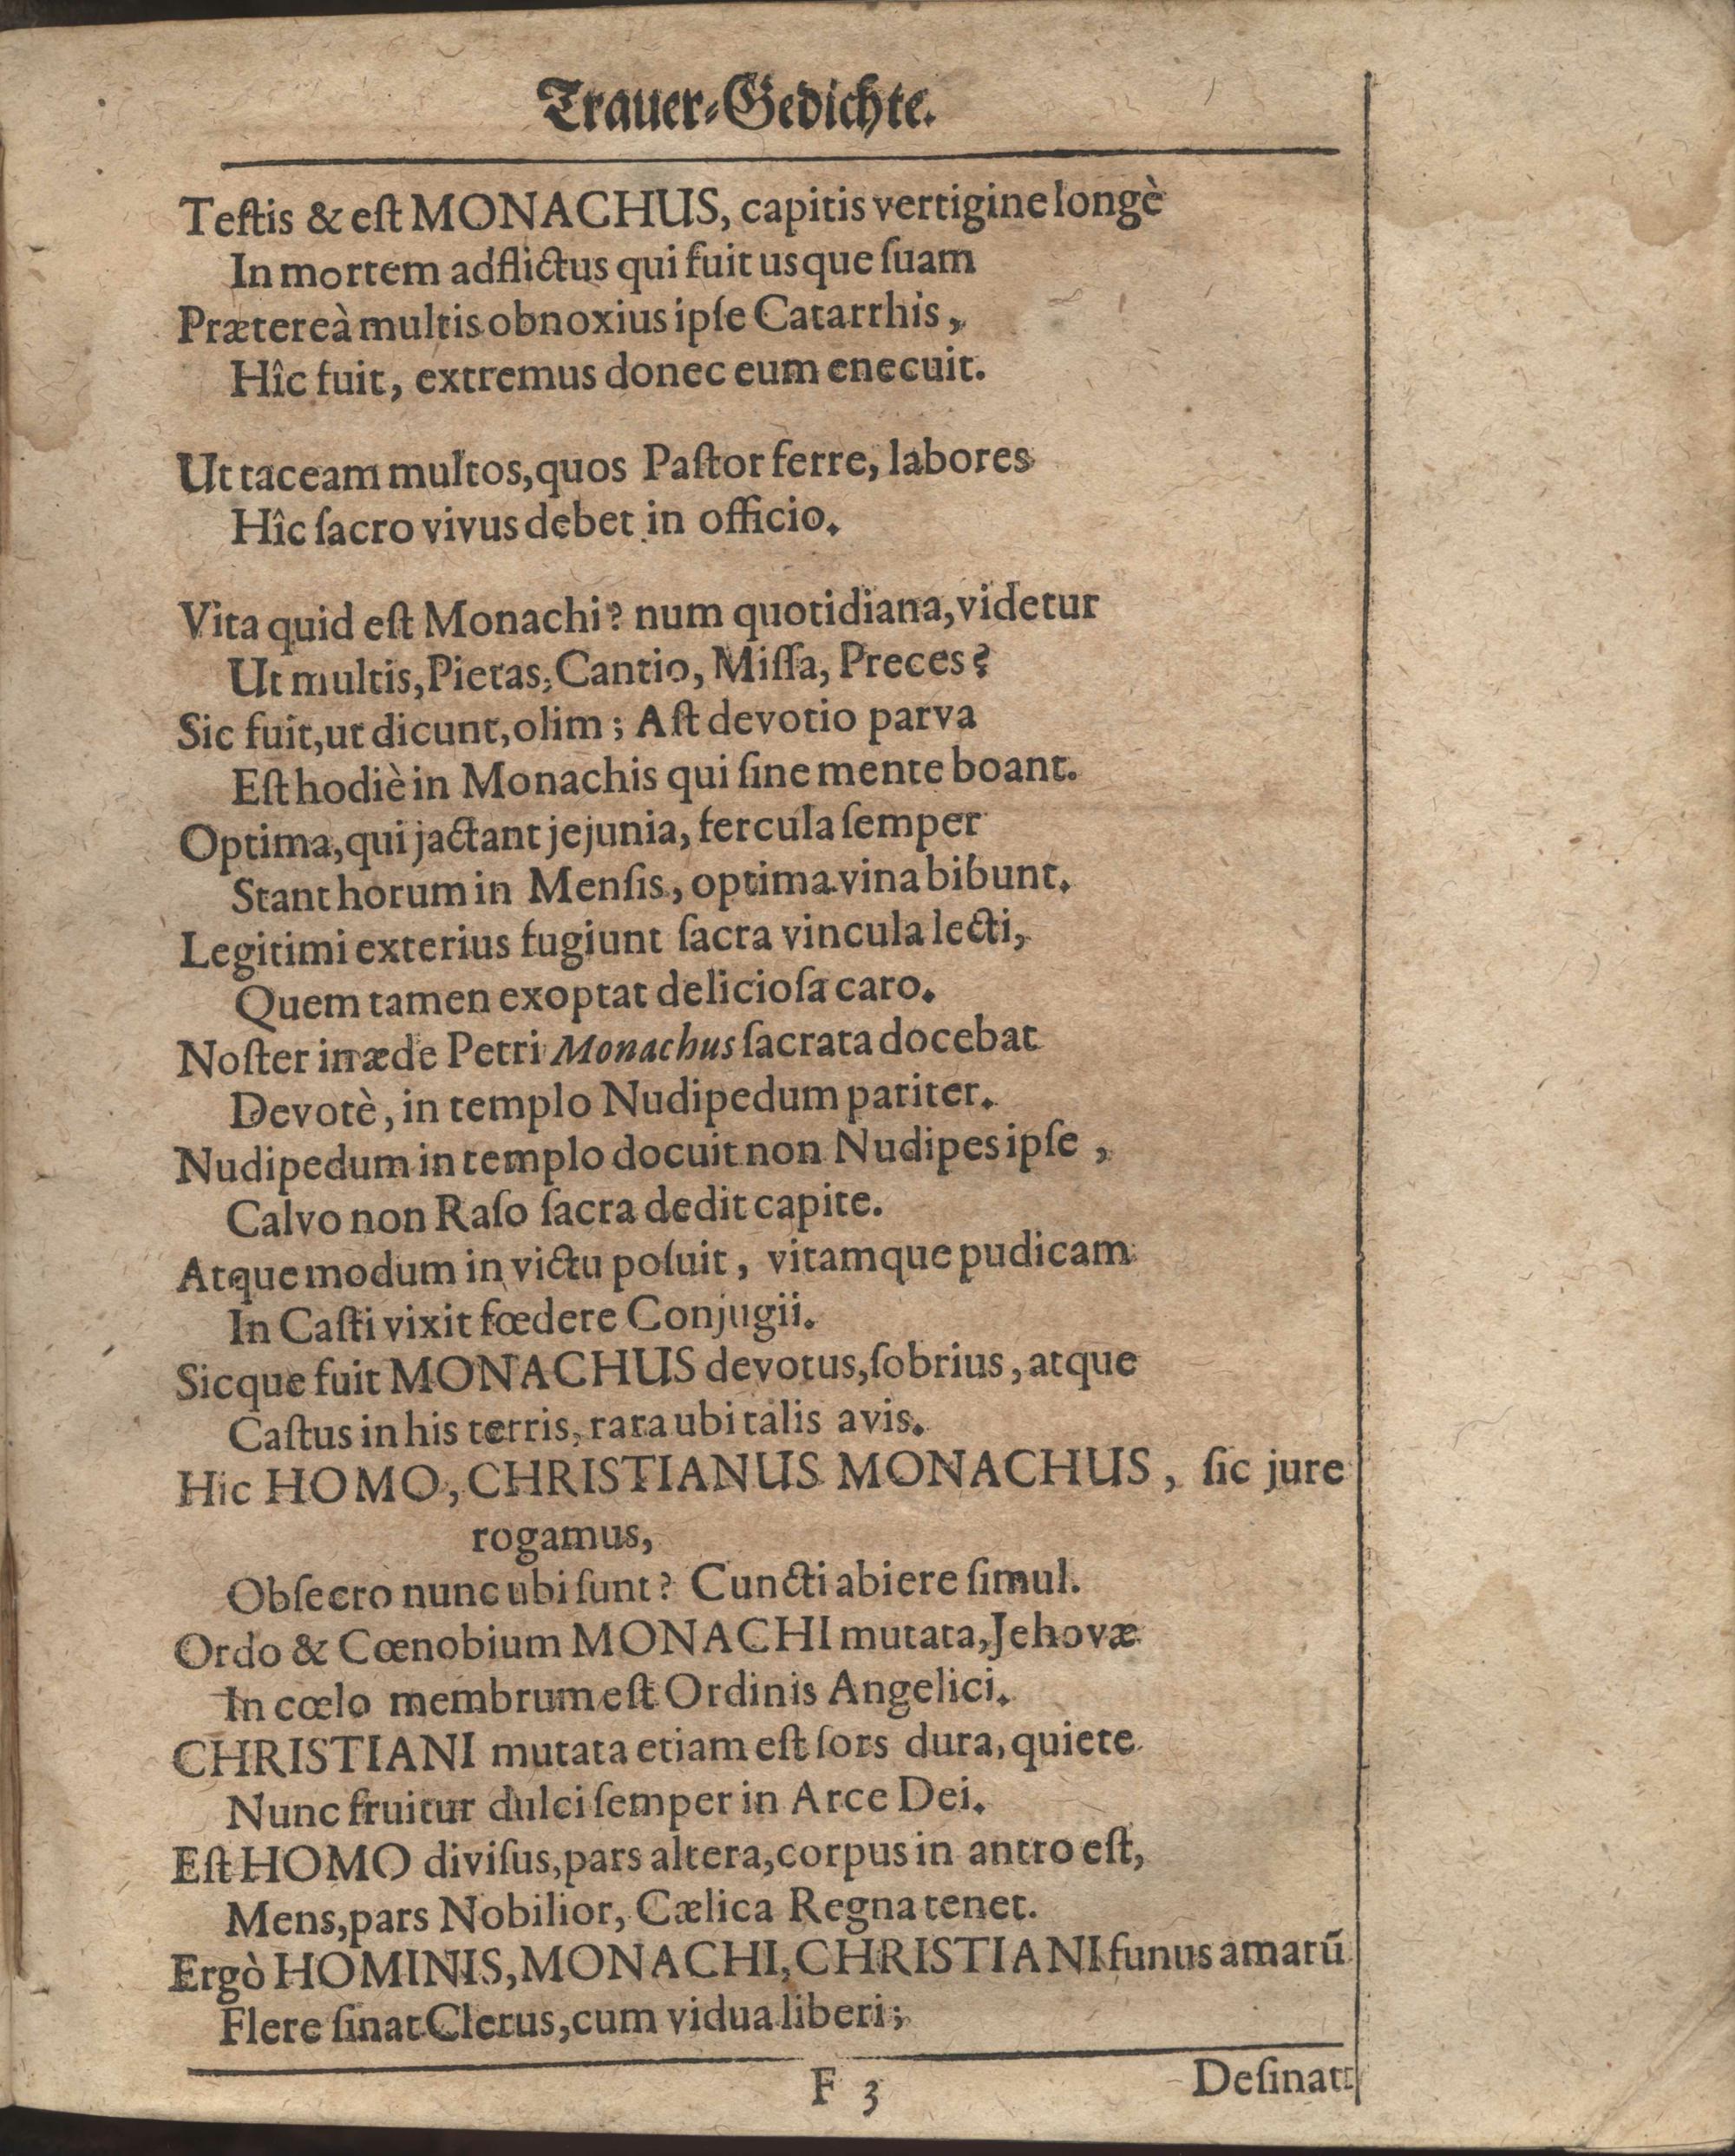 Trauer-Gedichte.
Teſtis & eſt MONACHUS, capitis vertigine longè
In mortem adflictus qui fuit usque ſuam
Prætereà multis obnoxius ipſe Catarrhis,
Hîc fuit, extremus donec eum enecuit.
Ut taceam multos, quos Paſtor ferre, labores
Hîc ſacro vivus debet in officio.
Vita quid eſt Monachi? num quotidiana, videtur
Ut multis, Pietas, Cantio, Miſſa, Preces?
Sic fuit, ut dicunt, olim; Aſt devotio parva
Eſt hodiè in Monachis qui ſine mente boant.
Optima, qui jactant jejunia, fercula ſemper
Stant horum in Menſis, optima vina bibunt.
Legitimi exterius fugiunt ſacra vincula lecti,
Quem tamen exoptat delicioſa caro.
Noſter in æde Petri Monachus ſacrata docebat
Devotè, in templo Nudipedum pariter.
Nudipedum in templo docuit non Nudipes ipſe,
Calvo non Raſo ſacra dedit capite.
Atque modum in victu poſuit, vitamque pudicam
In Caſti vixit fœdere Conjugii.
Sicque fuit MONACHUS devotus, ſobrius, atque
Caſtus in his terris, rara ubi talis avis.
Hic HOMO, CHRISTIANUS MONACHUS, ſic jure
rogamus,
Obſecro nunc ubi ſunt? Cuncti abiere ſimul.
Ordo & Cœnobium MONACHI mutata, Jehovæ
In cœlo membrum eſt Ordinis Angelici.
CHRISTIANI mutata etiam eſt ſors dura, quiete
Nunc fruitur dulci ſemper in Arce Dei.
Eſt HOMO diviſus, pars altera, corpus in antro eſt,
Mens, pars Nobilior, Cælica Regna tenet.
Ergò HOMINIS, MONACHI, CHRISTIANI funus amarū
Flere ſinat Clerus, cum vidua liberi;
F 3
Deſinat